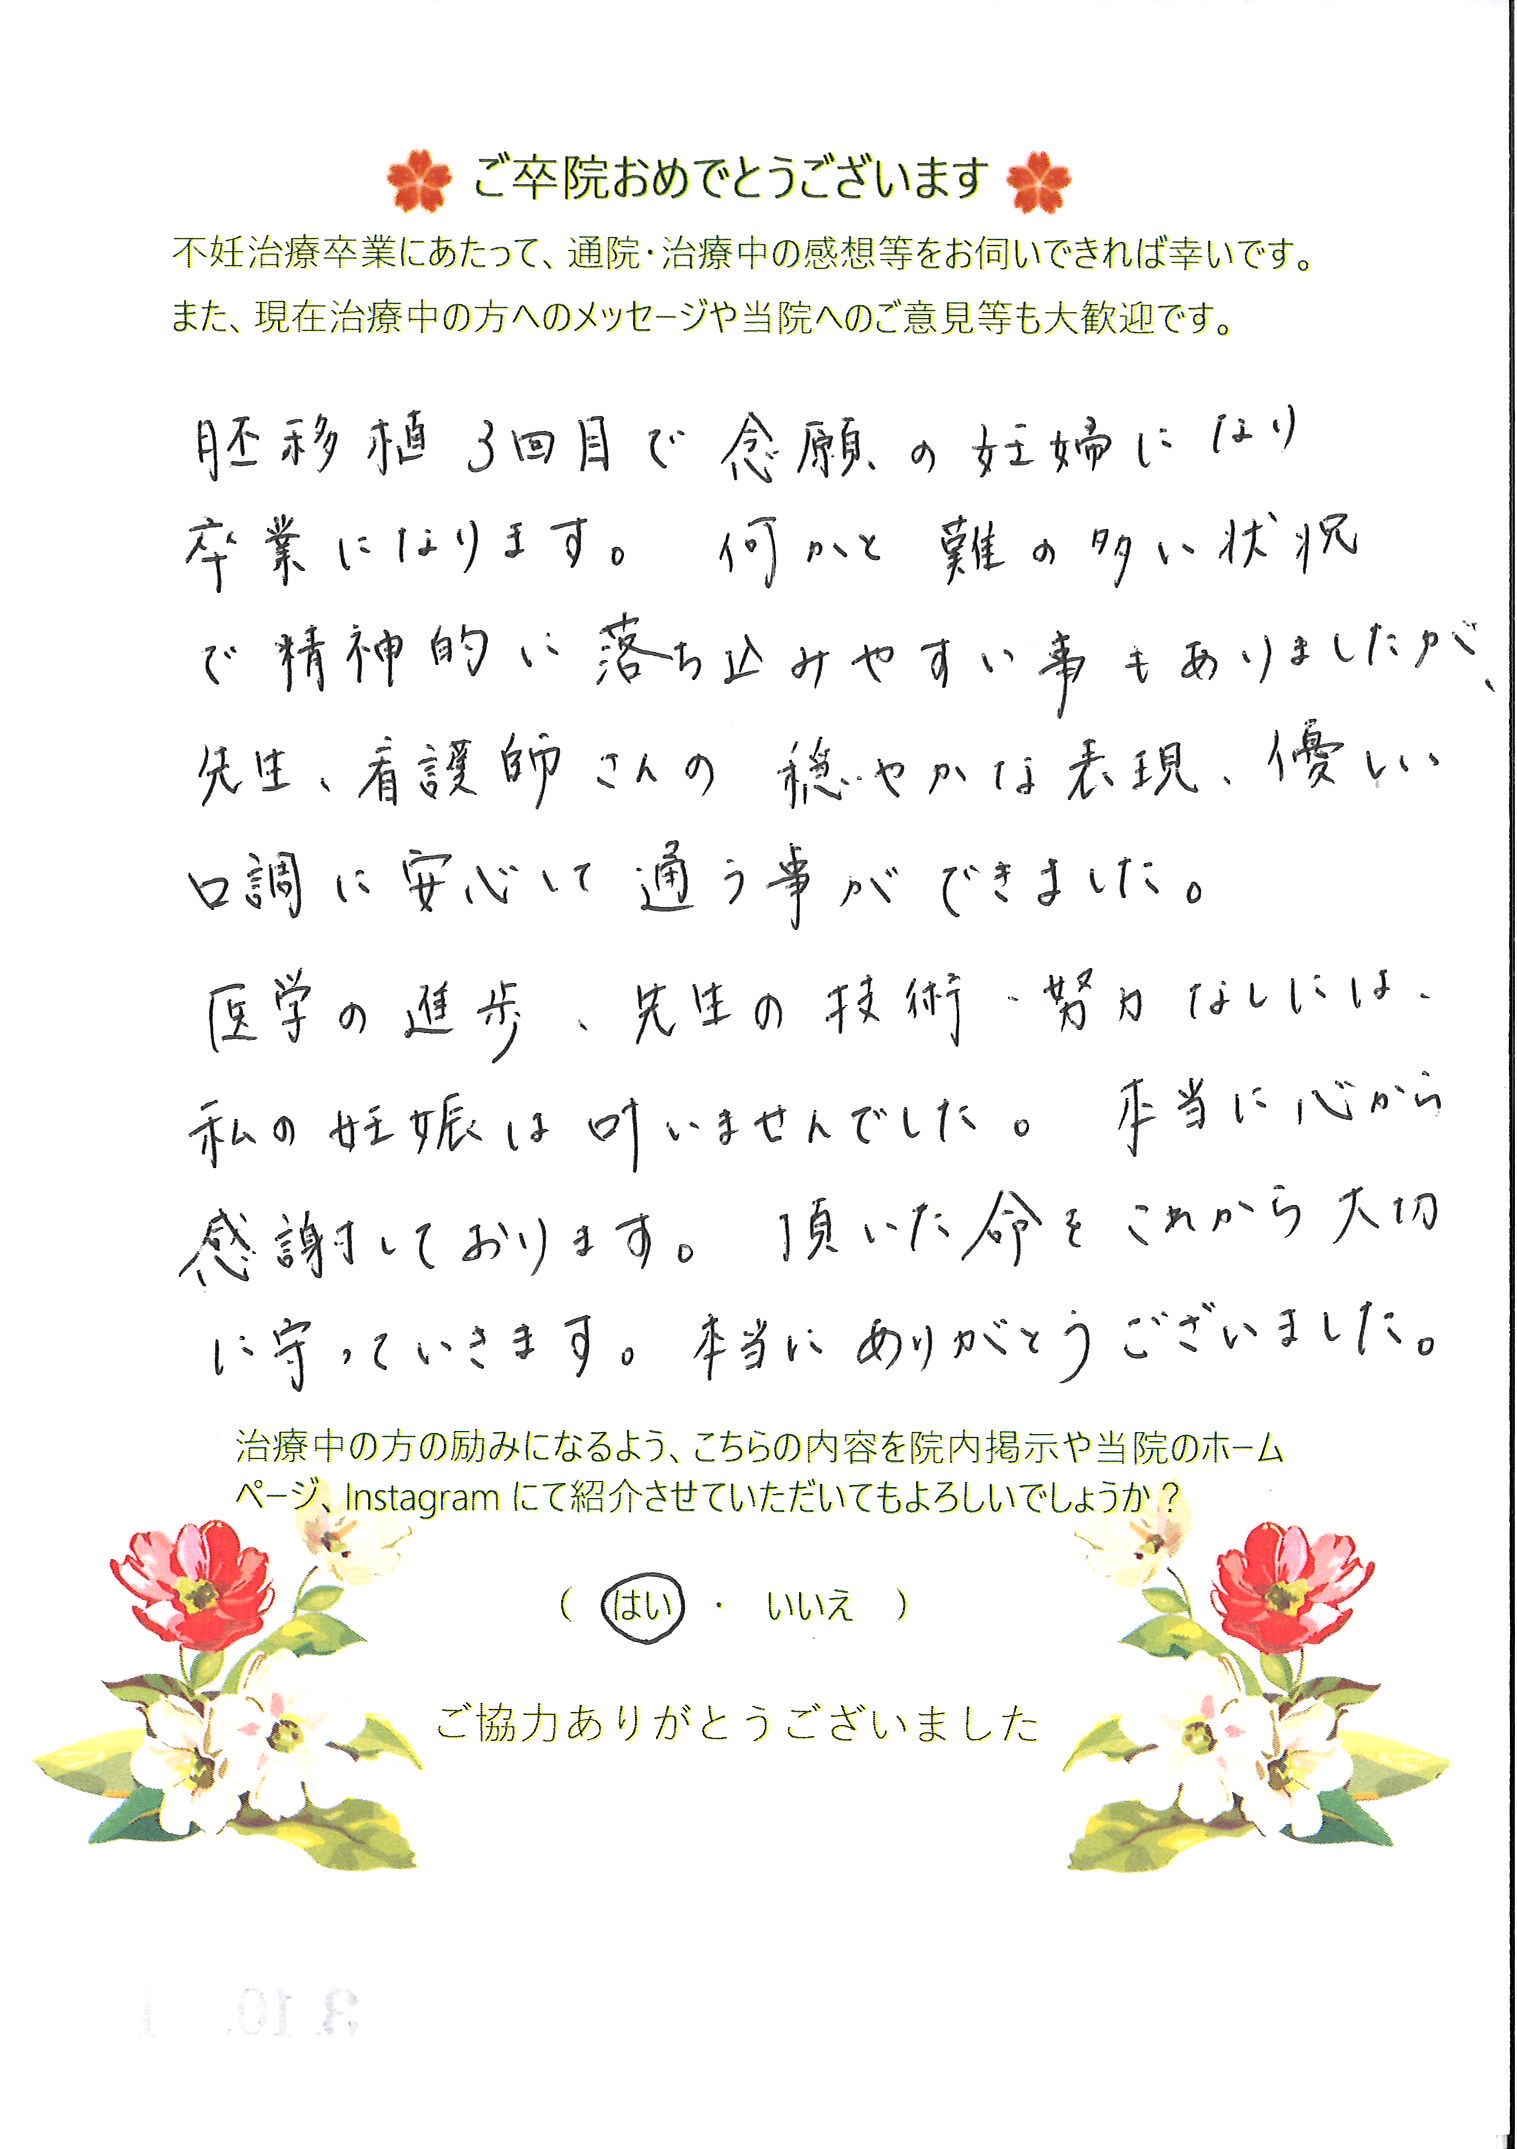 ご卒院おめでとうございます
不妊治療卒業にあたって、通院・治療中の感想等をお伺いできれば幸いです。
また、現在治療中の方へのメッセージや当院へのご意見等も大歓迎です。
胚移植3回目で念願の妊婦になり
卒業になります。何かと難の多い状況
で精神的に落ち込みやすい事もありましたが、
先生、看護師さんの穏やかな表現、優しい
口調に安心して通う事ができました。
医学の進歩、先生の技術・努力なしには、
私の妊娠は叶いませんでした。本当に心から
感謝しております。頂いた命をこれから大切
に守っていきます。本当にありがとうございました。
治療中の方の励みになるよう、こちらの内容を院内掲示や当院のホーム
ページ、Instagram にて紹介させていただいてもよろしいでしょうか？
（ はい ・ いいえ ）
ご協力ありがとうございました